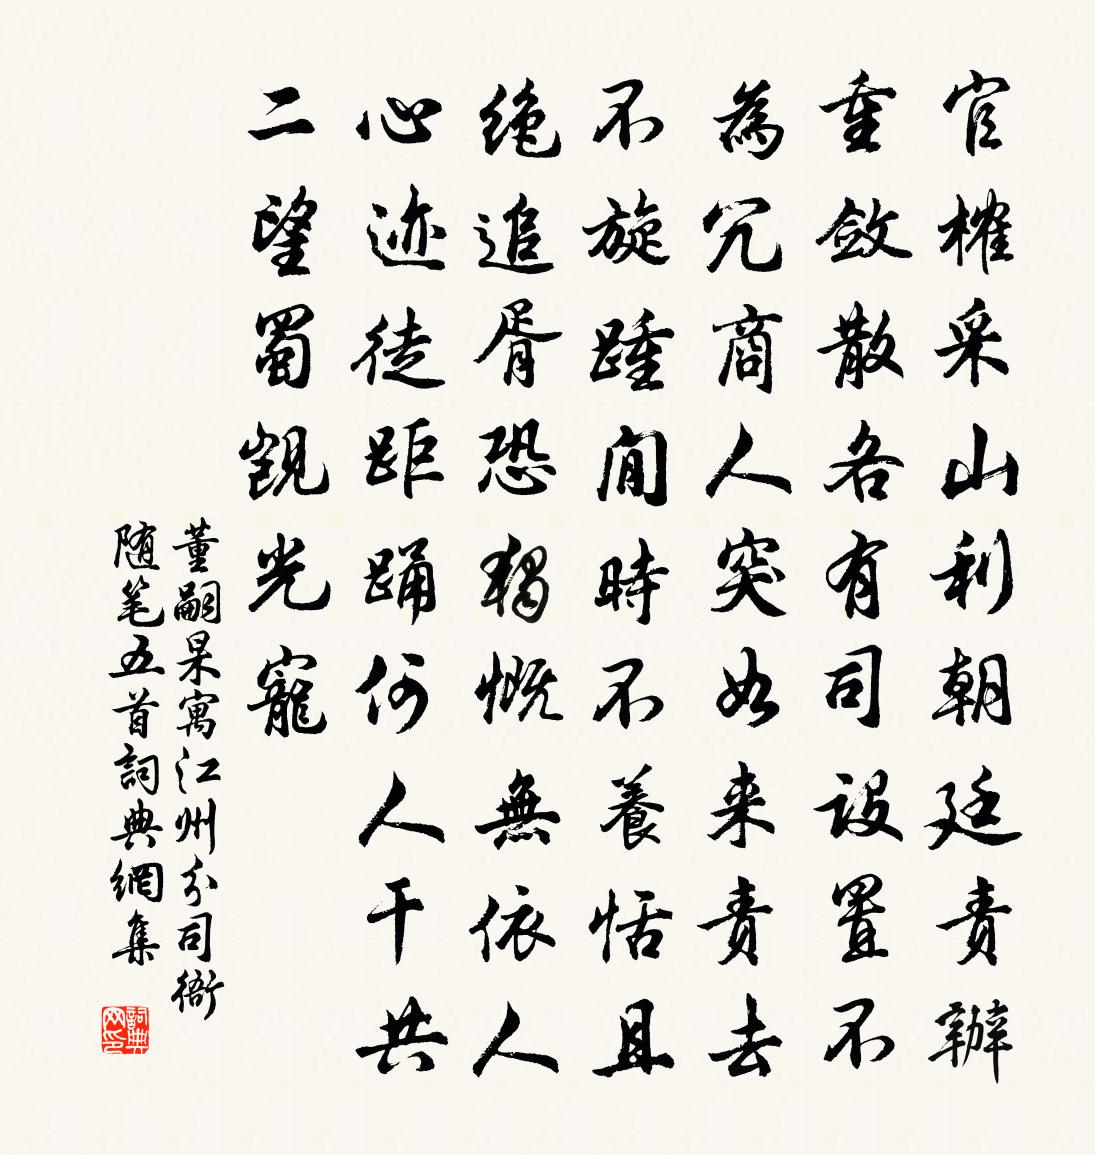 官榷采山利朝廷責辦
重斂散各有司設置不
為冗商人突如来責去
不旋踵閒時不養恬且
绝追胥恐獨慨無依人
心迹徒距踊何人干共
二望蜀觊光寵
董嗣杲寓江州分司衙
随笔五首詞典網集
詞典网印